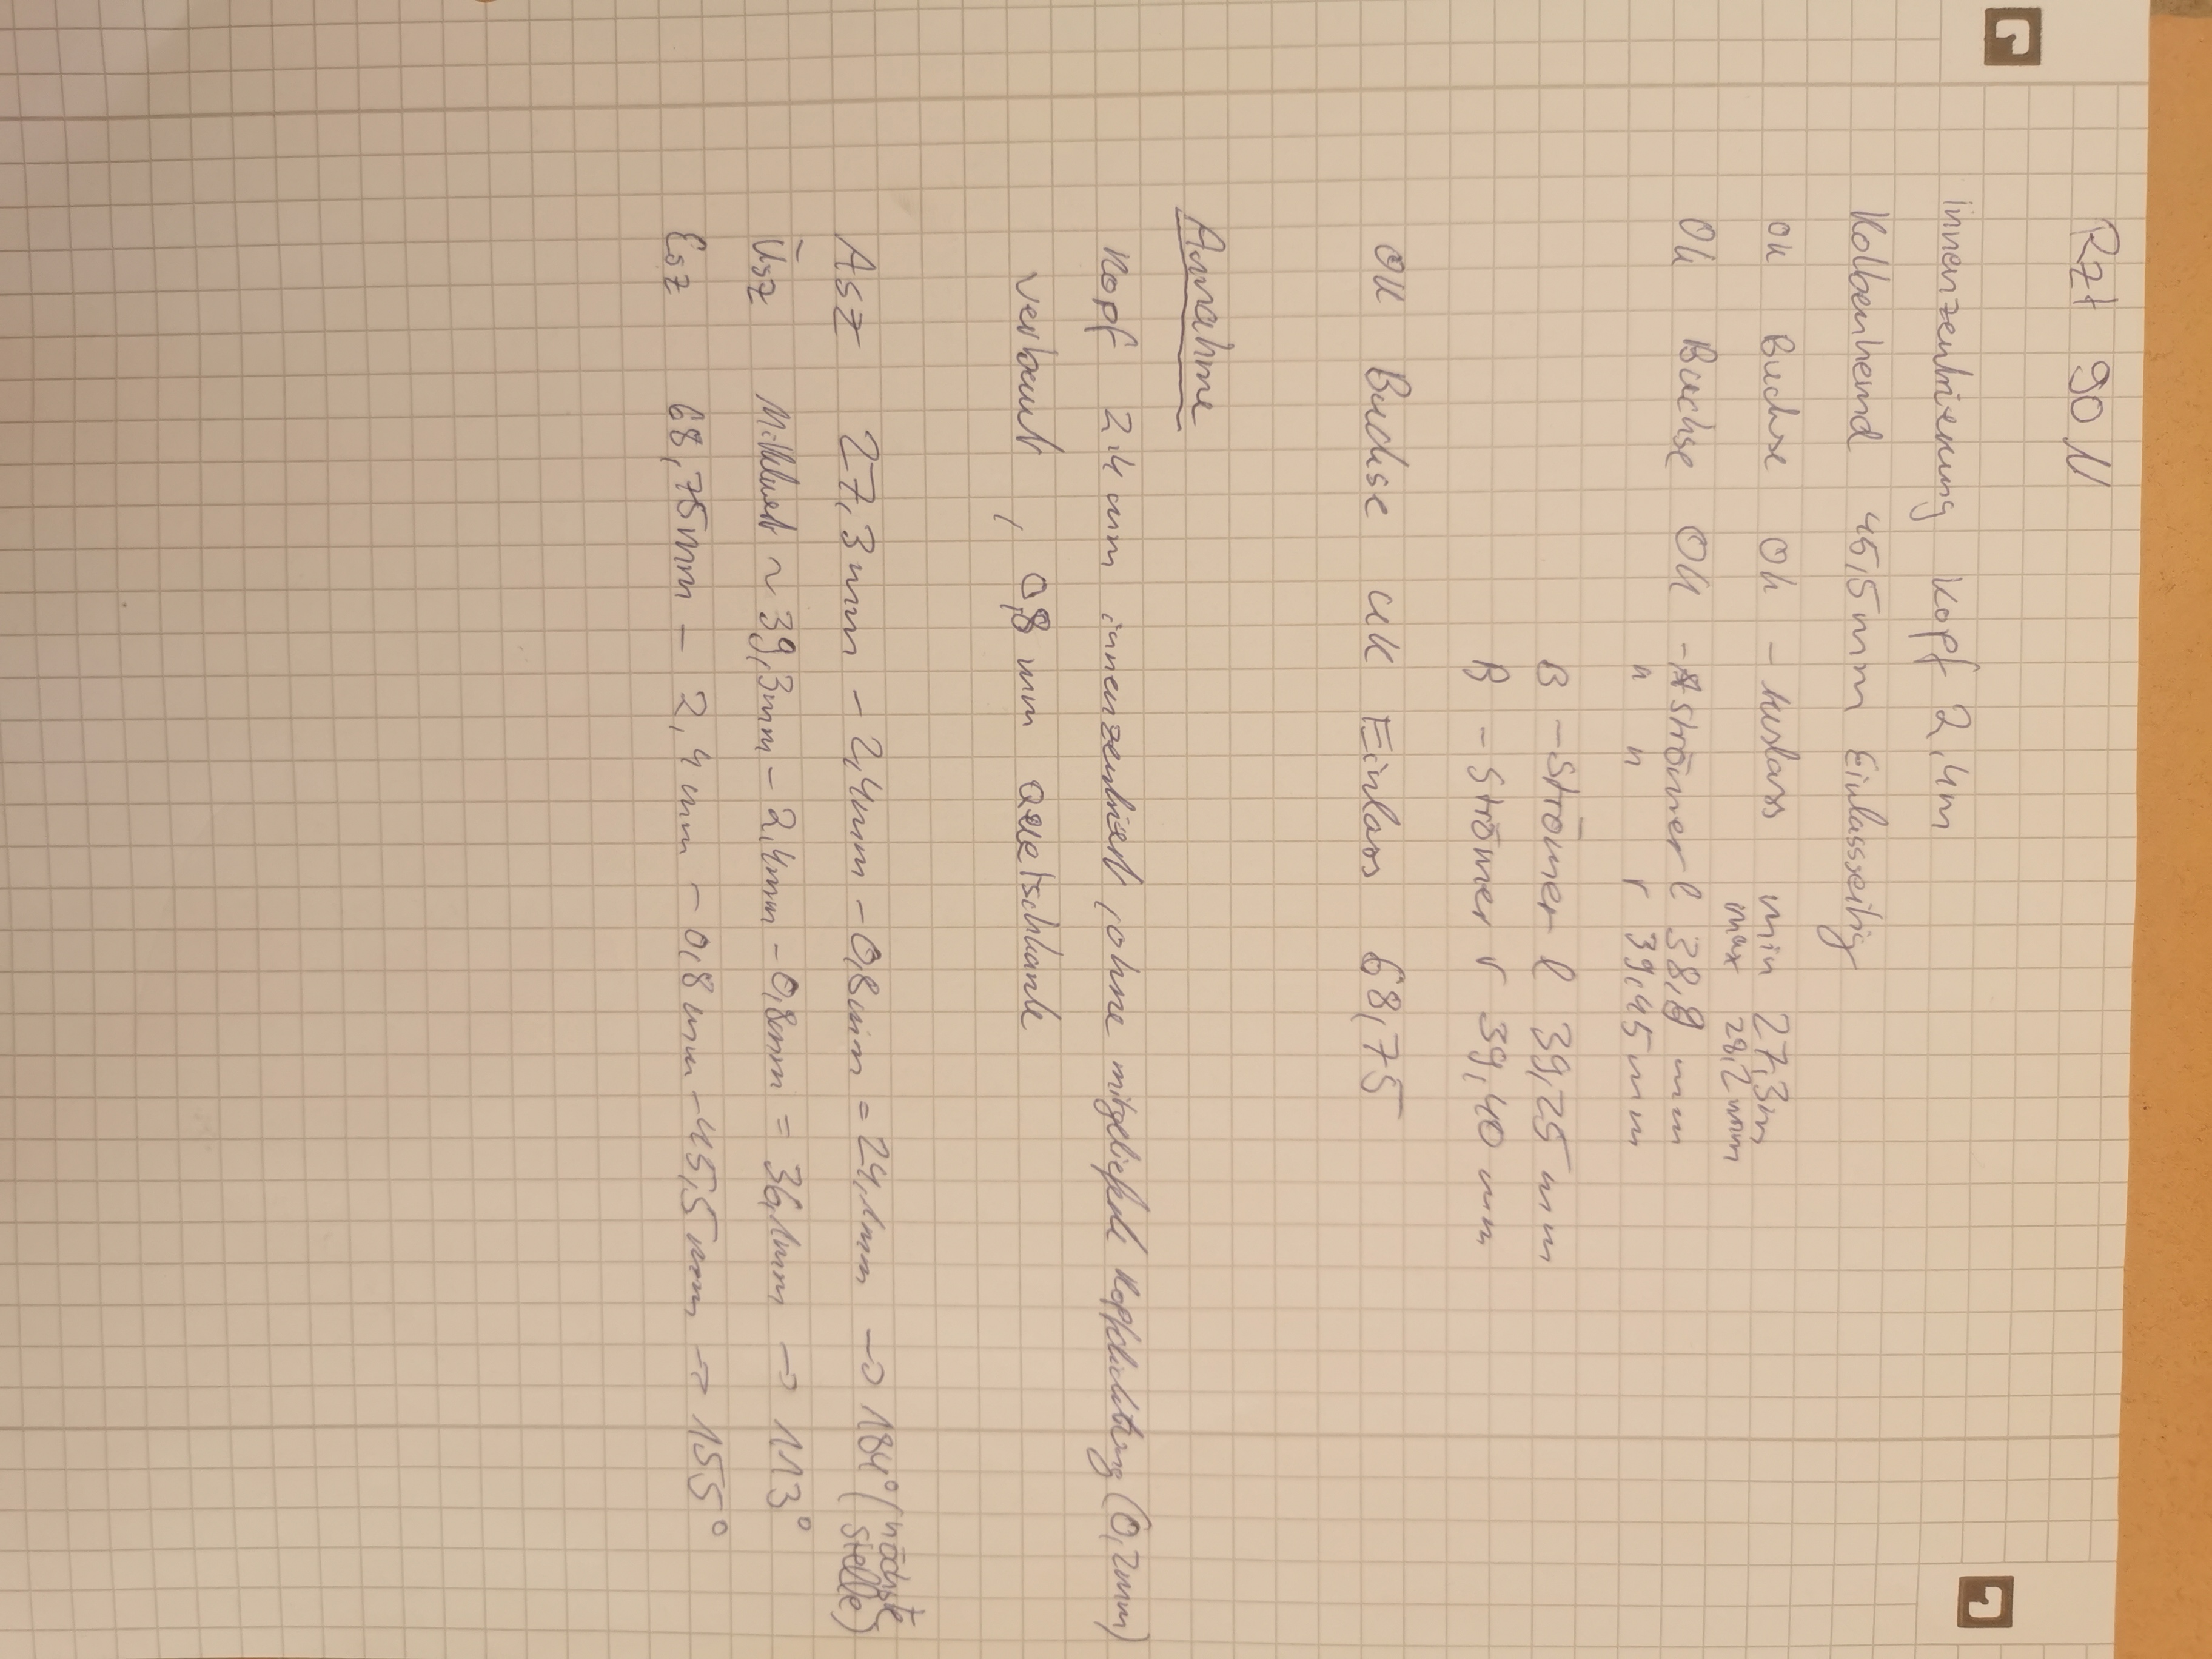 RZt 90 N
Innenzentrierung Kopf 2,4m
Kolbenhemd 45,5mm Einlassseitig
OK Buchse OK - Auslass min 27,3m
max 28,2mm
OK Buchse OK - A Strömer l 38,9 mm
" " r 39,45mm
B - Strömer l 39,25 mm
B - Strömer r 39,40 mm
OK Buchse UK Einlass 68,75
Annahme
Kopf 2,4 mm innenzentriert, ohne mitgeliefert Kopfdichtung (0,2mm)
verbaut, 0,8 mm Quetschkante
ASZ 27,3mm - 2,4mm - 0,8mm = 24,1mm → 184° (höchste Stelle)
Üsz Mittelwert ~ 39,3mm - 2,4mm - 0,8mm = 36,1mm → 113°
Esz 68,75mm - 2,4mm - 0,8mm - 45,5mm → 155°